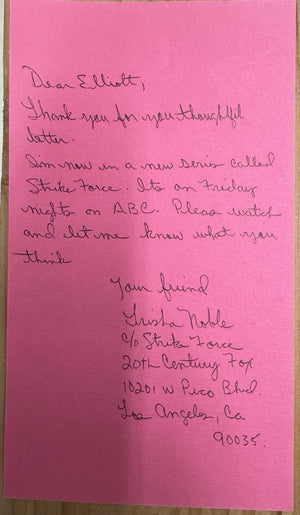 Dear Elliott,
Thank you for you thoughtful
letter.
I'm now in a new series called
Strike Force. Its on Friday
nights on ABC. Please watch
and let me know what you
think
Your friend
Trisha Noble
c/o Strike Force
20th Century Fox
10201 W Pico Blvd.
Los Angeles, Ca
90035.